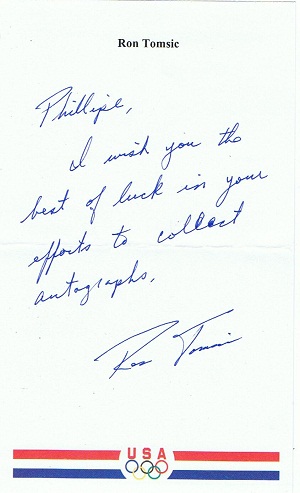 Ron Tomsic
Phillipe,
I wish you the
best of luck in your
efforts to collect
autographs.
Ron Tomsic
USA